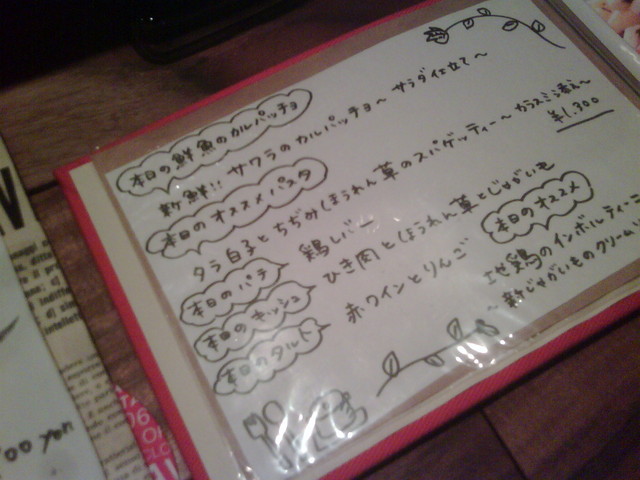 本日の鮮魚のカルパッチョ
新鮮!! サワラのカルパッチョ〜 サラダ仕立て〜
本日のオススメパスタ
タラ白子とちぢみほうれん草のスパゲッティー〜 カラスミ添え〜
¥1,300
本日のパテ 鶏レバー
本日のキッシュ ひき肉とほうれん草とじゃがいも
本日のタルト 赤ワインとりんご
本日のオススメ
地鶏のインボルティーニ
〜新じゃがいものクリーム